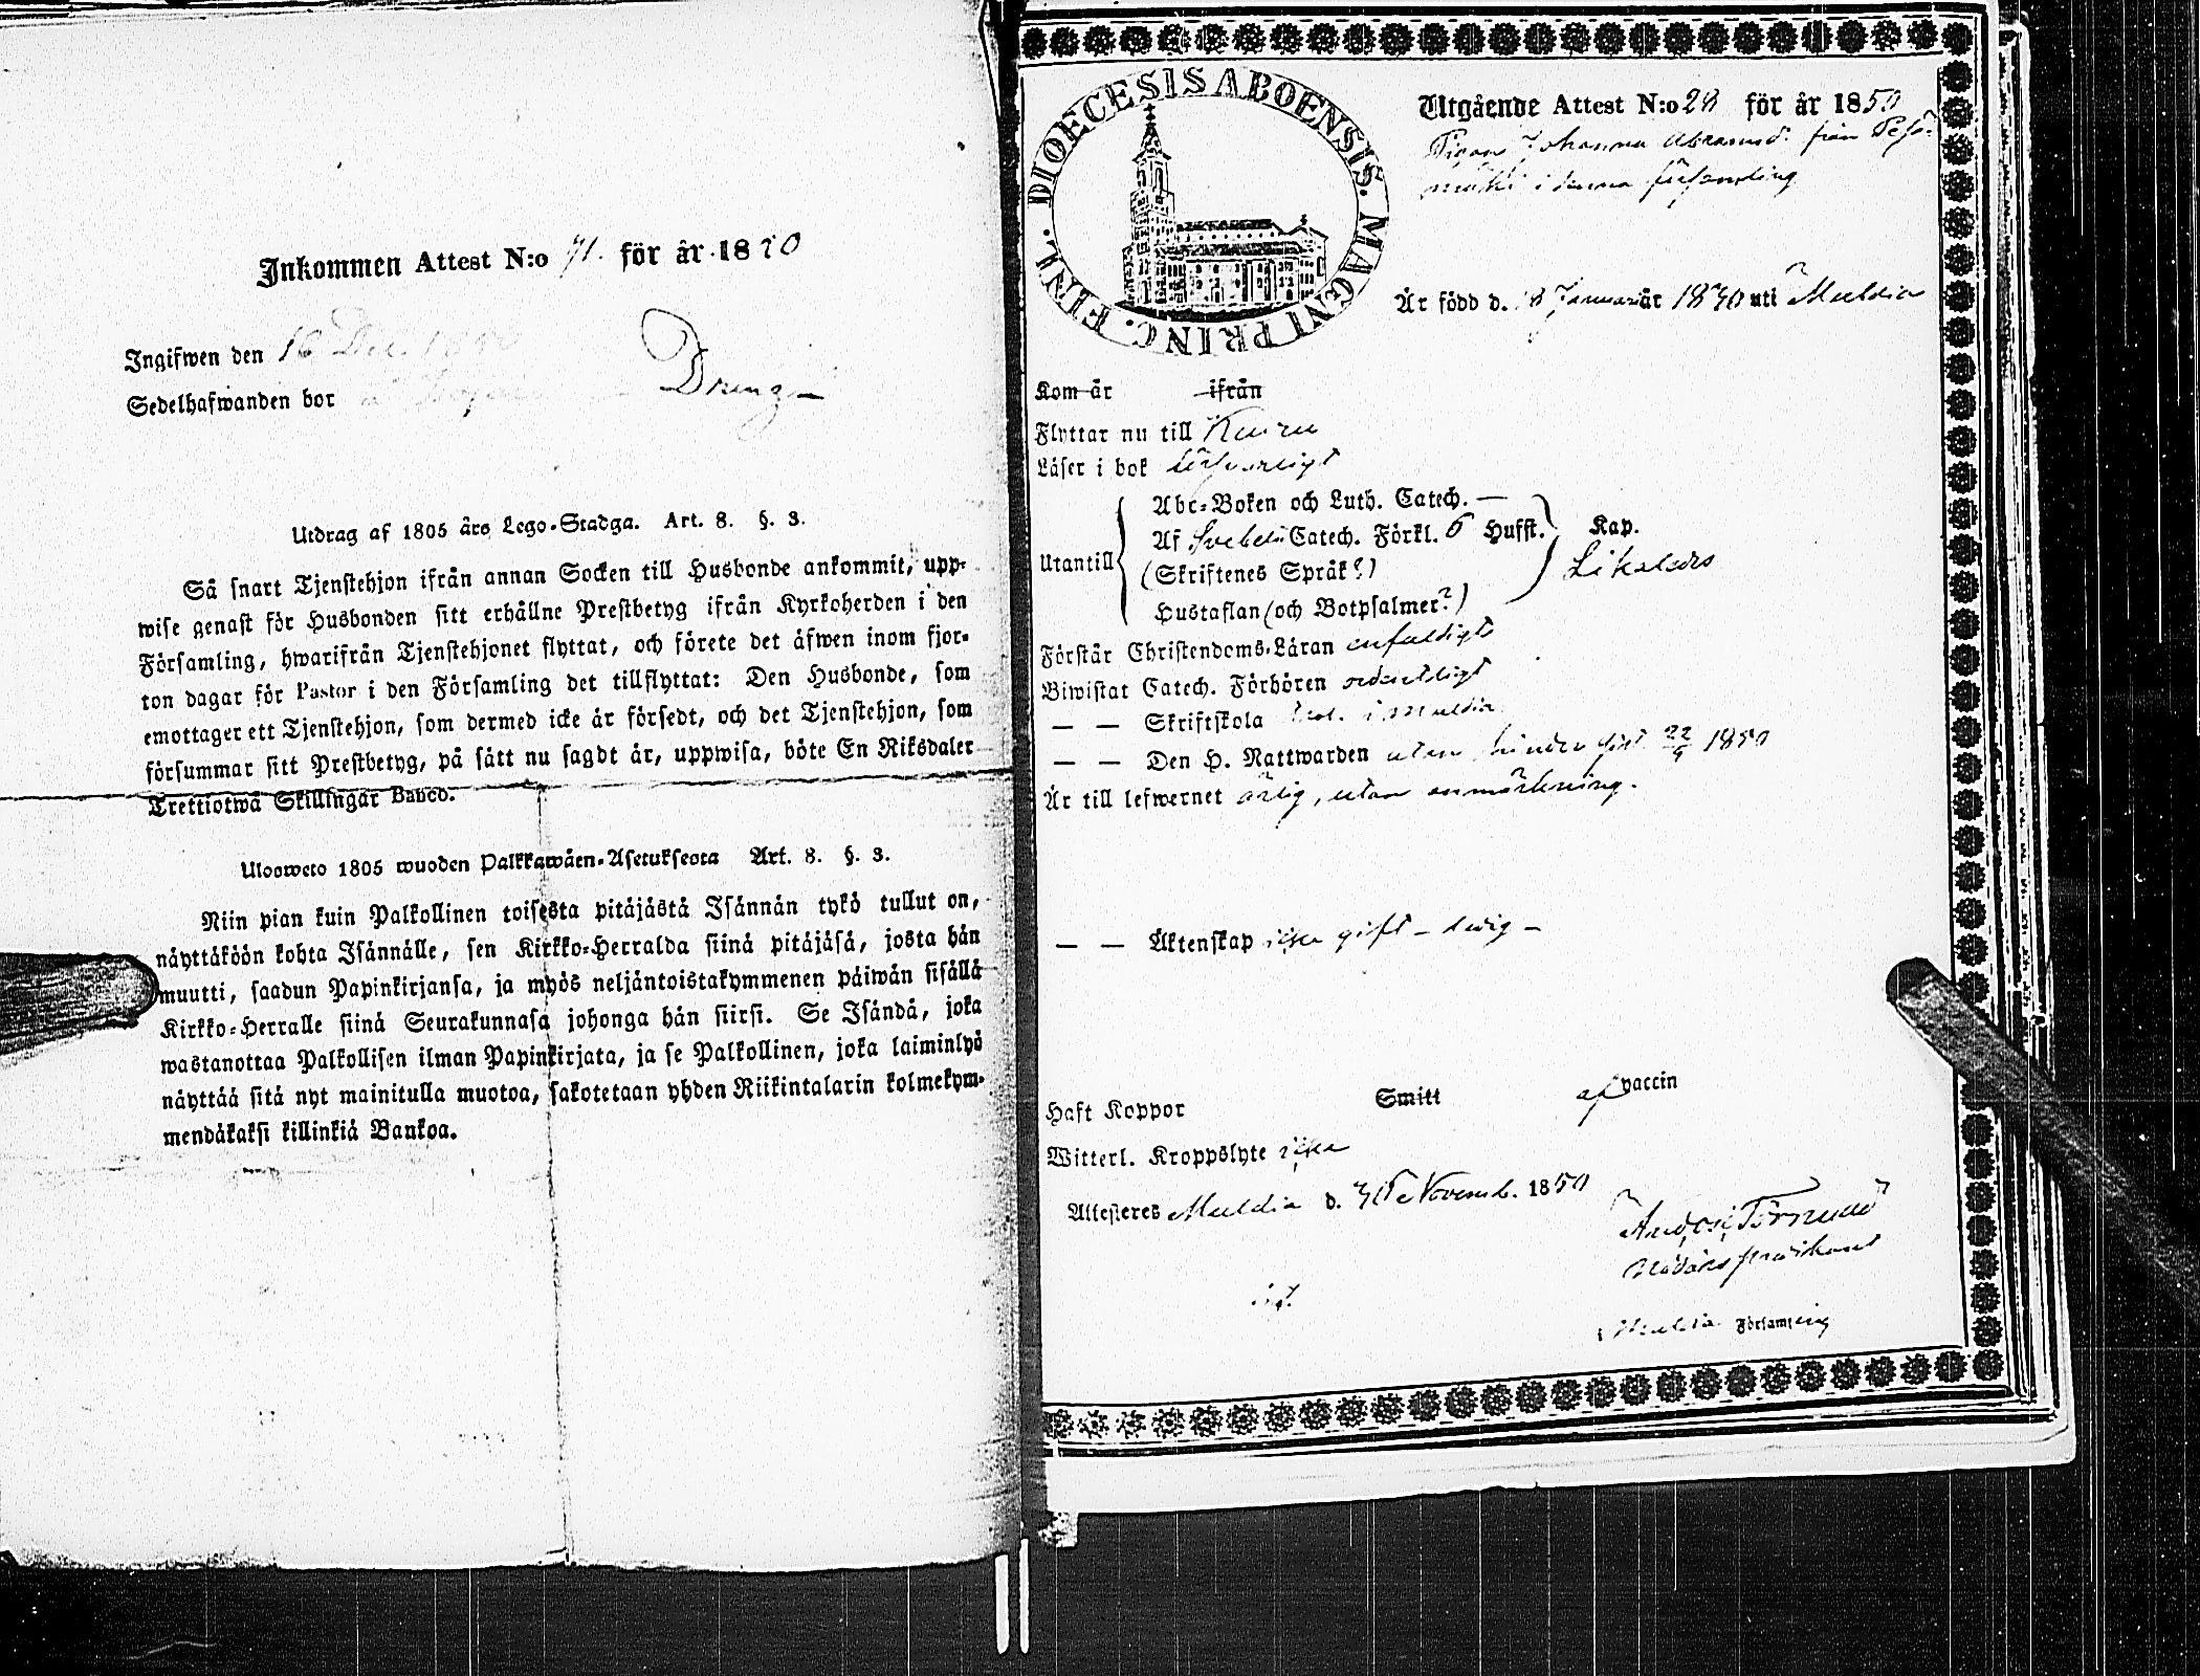 Inkommen Attest N:o 71. för år 18
Ingifwen den 16 Dec.
Sedelhafwanden bor
Dreng
Utdrag af 1805 års Lego-Stadga. Art. 8. §. 3.
Så snart Tjenstehjon ifrån annan Socken till Husbonde ankommit, upp-
wise genast för Husbonden sitt erhållne Prestbetyg ifrån Kyrkoherden i den
Församling, hwarifrån Tjenstehjonet flyttat, och förete det äfwen inom fjor-
ton dagar för Pastor i den Församling det tillflyttat: Den Husbonde, som
emottager ett Tjenstehjon, som dermed icke är försedt, och det Tjenstehjon, som
försummar sitt Prestbetyg, på sätt nu sagdt är, uppwisa, böte En Riksdaler
Trettiotwå Skillingar Banco.
Ulosweto 1805 wuoden Palkkawäen-Asetuksesta Art. 8. §. 3.
Niin pian kuin Palkollinen toisesta pitäjästä Isännän tykö tullut on,
näyttäköön kohta Isännälle, sen Kirkko-Herralda siinä pitäjäsä, josta hän
muutti, saadun Papinkirjansa, ja myös neljäntoistakymmenen päiwän sisällä
Kirkko-Herralle siinä Seurakunnasa johonga hän siirsi. Se Isändä, joka
wastanottaa Palkollisen ilman Papinkirjata, ja se Palkollinen, joka laiminlyö
näyttää sitä nyt mainitulla muotoa, sakotetaan yhden Riikintalarin kolmekym-
mendäkaksi killinkiä Bankoa.
DIOECESIS ABOENSIS. MAGNI PRINC. FINL.
Utgående Attest N:o 28 för år 1850
Pigan Johanna Abramsd. från
i denna församling
Är född d. 8 Januari år 1830 uti Muldia
Kom år ifrån
Flyttar nu till Kuru
Läser i bok försvarligt
Utantill
Abc-Boken och Luth. Catech. —
Af Svebelii Catech. Förkl. 6 Hufst. Kap.
(Skriftenes Språk?) Likaledes
Hustaflan (och Botpsalmer?)
Förstår Christendoms-Läran enfaldigt
Biwistat Catech. Förhören ordentligt
— — Skriftskola i Muldia
— — Den H. Nattwarden utan hinder sist 22/9 1850
Är till lefwernet ärlig, utan anmärkning.
— — Äktenskap icke gift – ledig –
Haft Koppor Smitt af vaccin
Witterl. Kroppslyte icke
Attesteres Muldia d. 30 Novemb. 1850
Törnudd
Nådårspredikant
i Muldia Församling